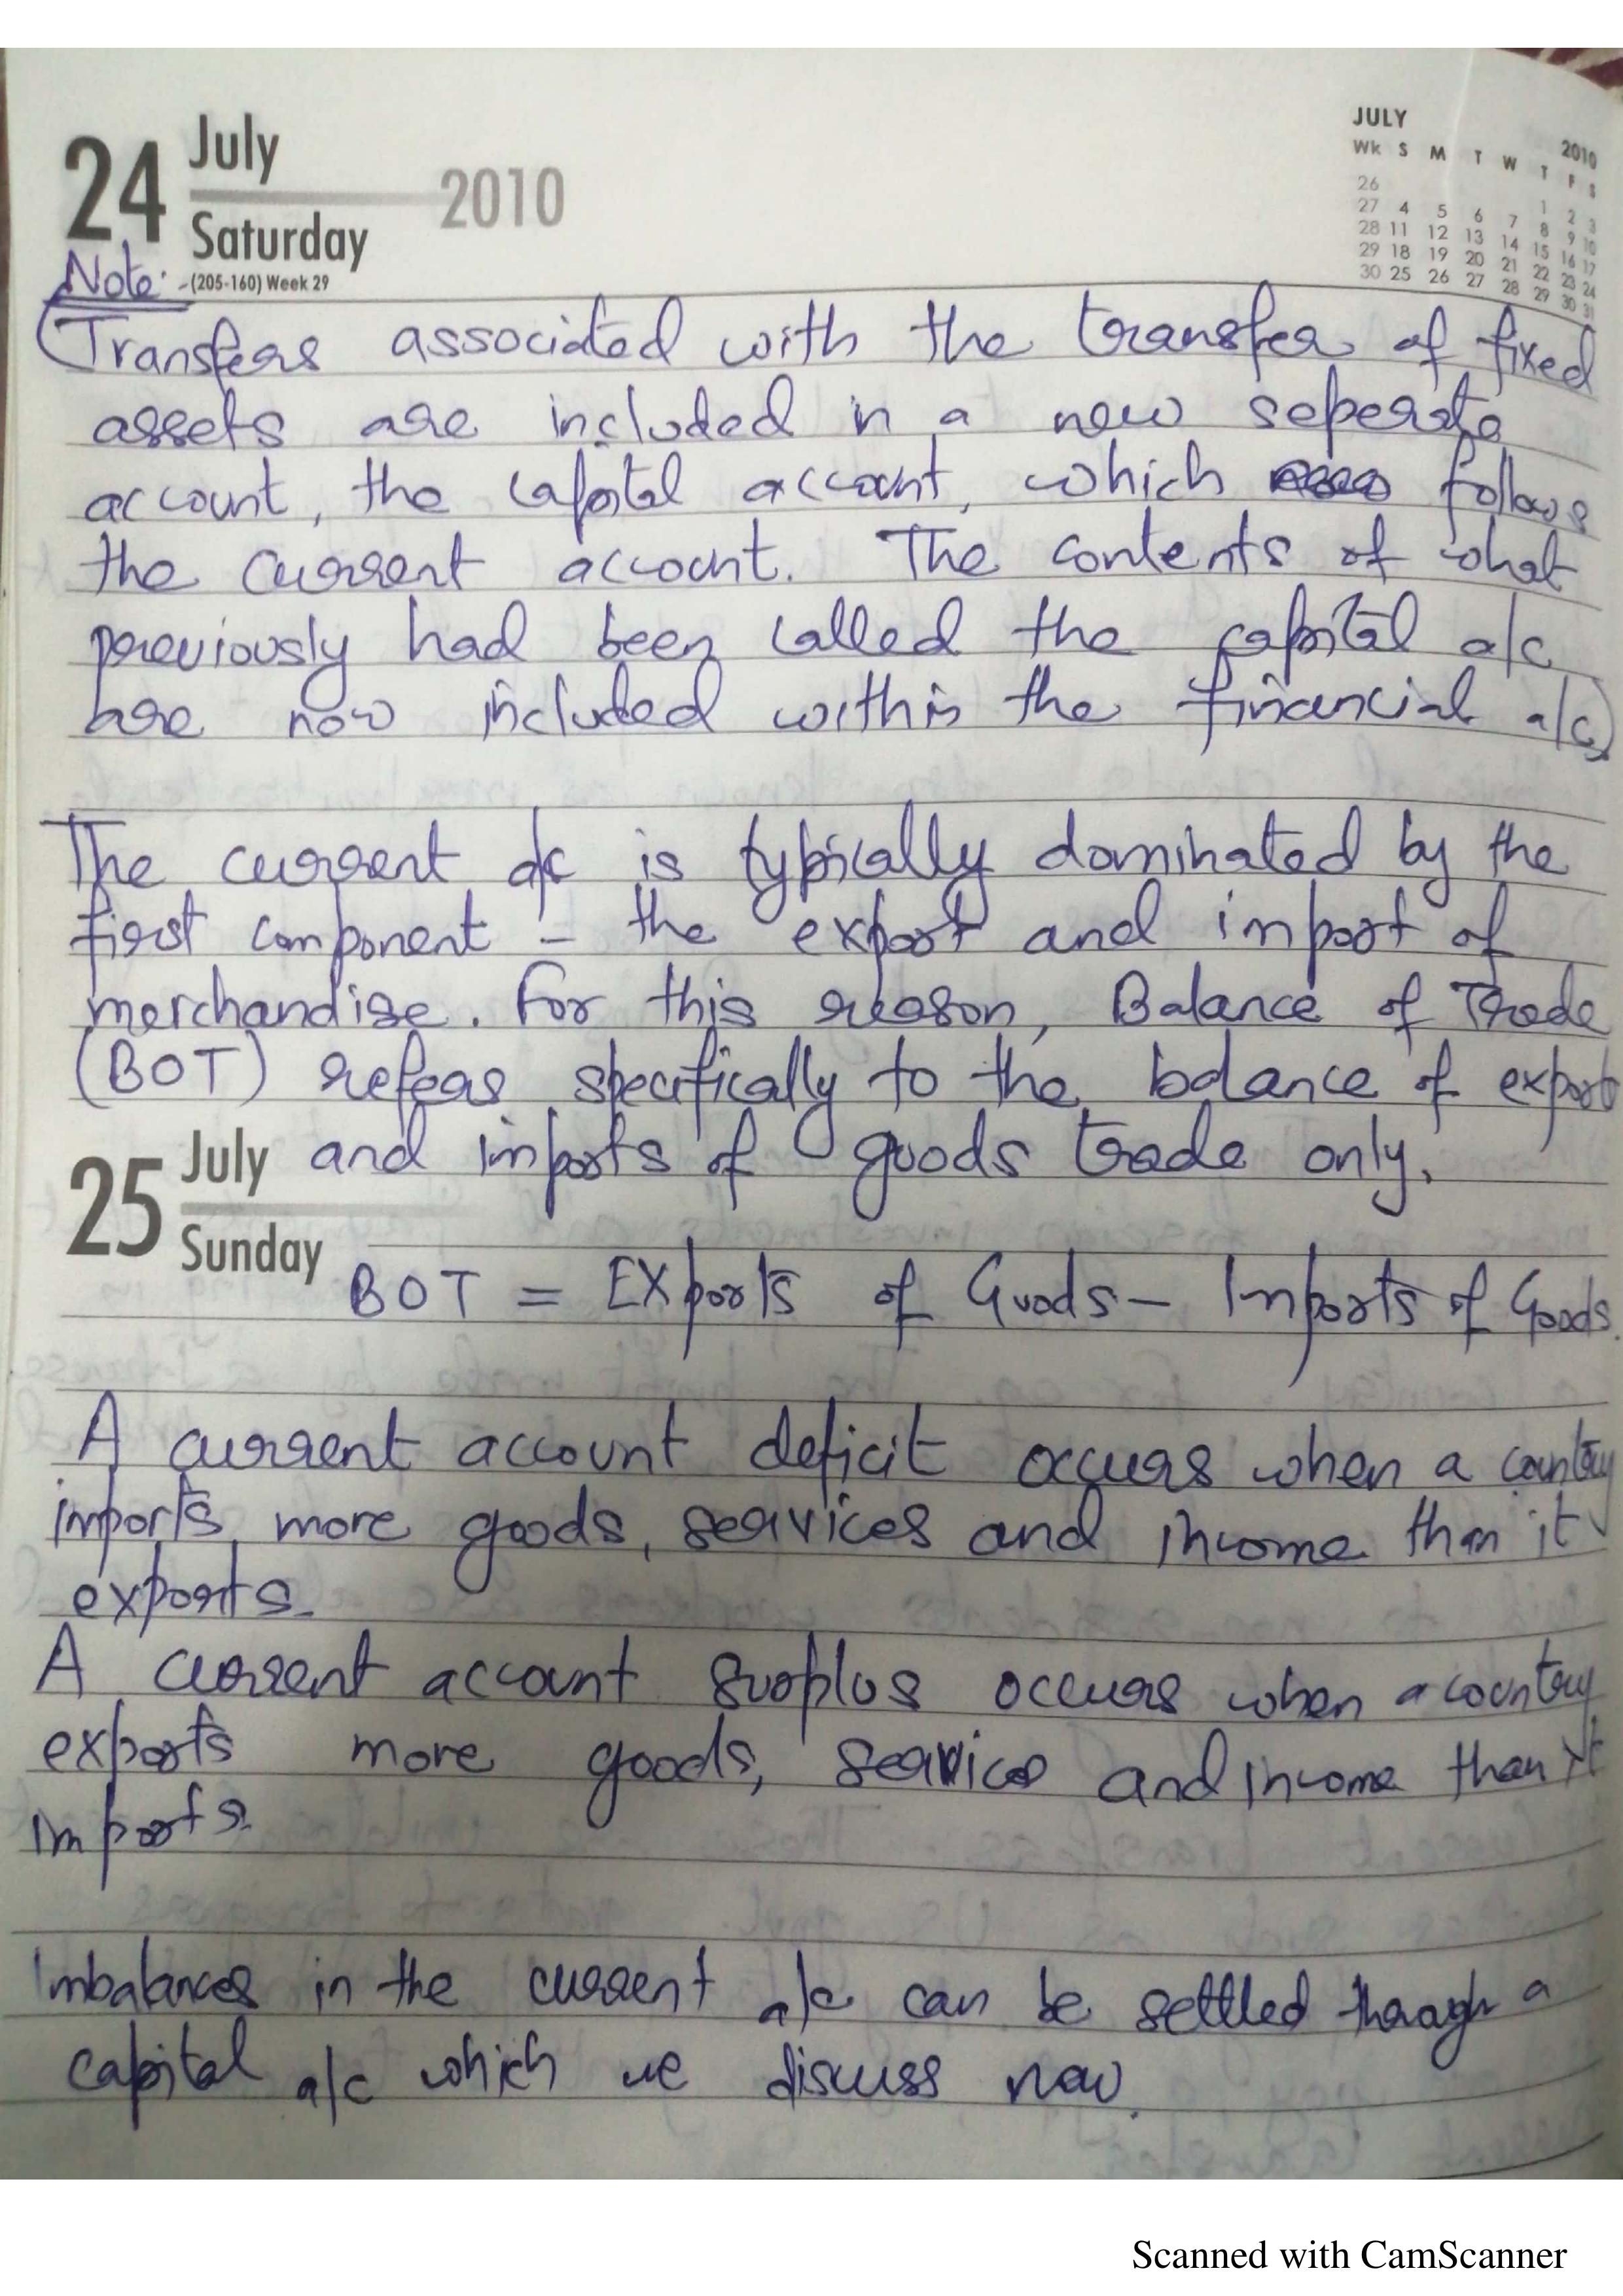 24 July 2010
Saturday
(205-160) Week 29
JULY 2010
Wk S M T W T F S
26 1 2 3
27 4 5 6 7 8 9 10
28 11 12 13 14 15 16 17
29 18 19 20 21 22 23 24
30 25 26 27 28 29 30 31
Note:
(Transfers associated with the transfer of fixed
assets are included in a new seperate
account, the capital account, which follows
the current account. The contents of what
previously had been called the capital a/c
are now included within the financial a/c)
The current a/c is typically dominated by the
first component - the export and import of
merchandise. For this reason, Balance of Trade
(BOT) refers specifically to the balance of export
and imports of goods trade only.
25 July
Sunday
BOT = EXports of Goods - Imports of Goods.
A current account deficit occurs when a country
imports more goods, services and income than it
exports.
A current account surplus occurs when a country
exports more goods, service and income than it
imports.
Imbalances in the current a/c can be settled through a
capital a/c which we discuss now.
Scanned with CamScanner